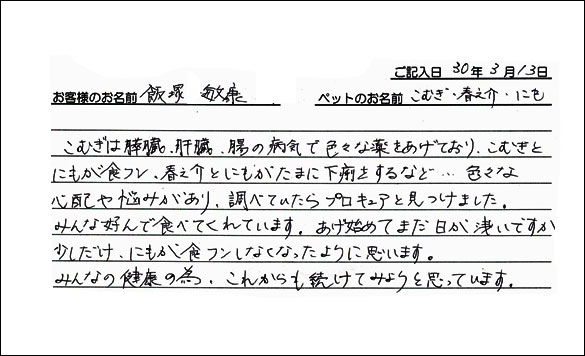 ご記入日 30年3月13日
お客様のお名前 飯塚 敏康 ペットのお名前 こむぎ・春之介・にも
こむぎは膵臓、肝臓、腸の病気で色々な薬をあげており、こむぎと
にもが食フン、春之介とにもがたまに下痢をするなど… 色々な
心配や悩みがあり、調べていたらプロキュアを見つけました。
みんな好んで食べてくれています。あげ始めてまだ日が浅いですが
少しだけ、にもが食フンしなくなったように思います。
みんなの健康の為、これからも続けてみようと思っています。